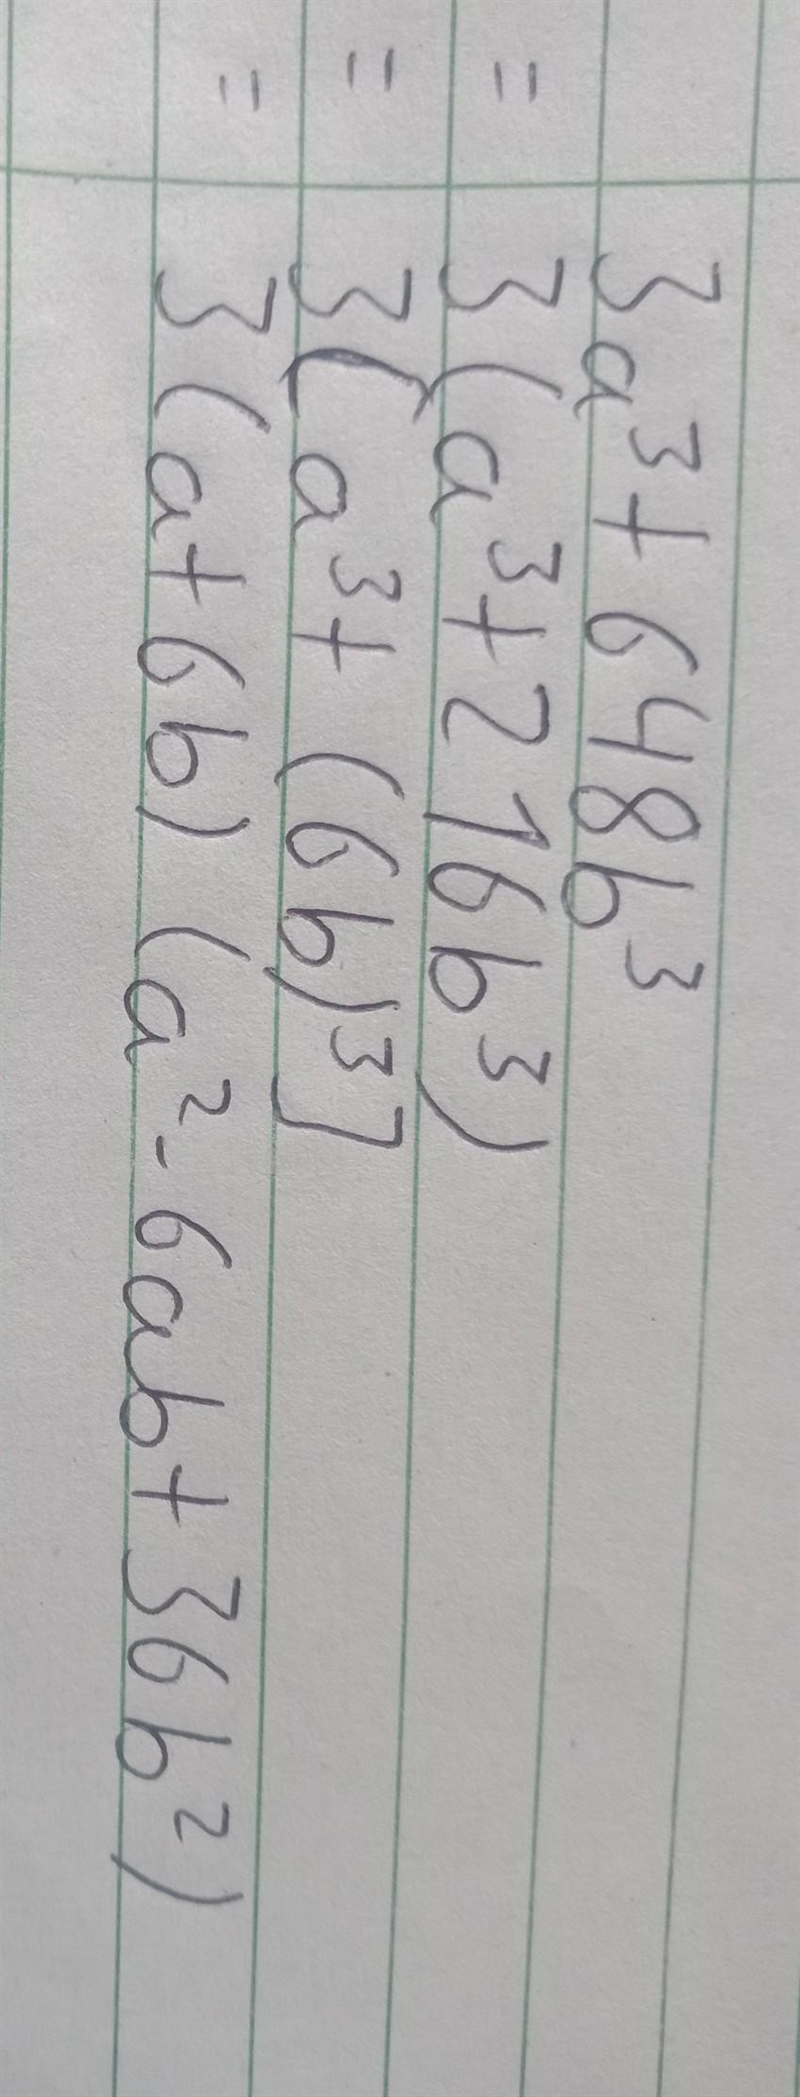 3a³ + 648b³
= 3(a³ + 216b³)
= 3[a³ + (6b)³]
= 3(a + 6b)(a² - 6ab + 36b²)